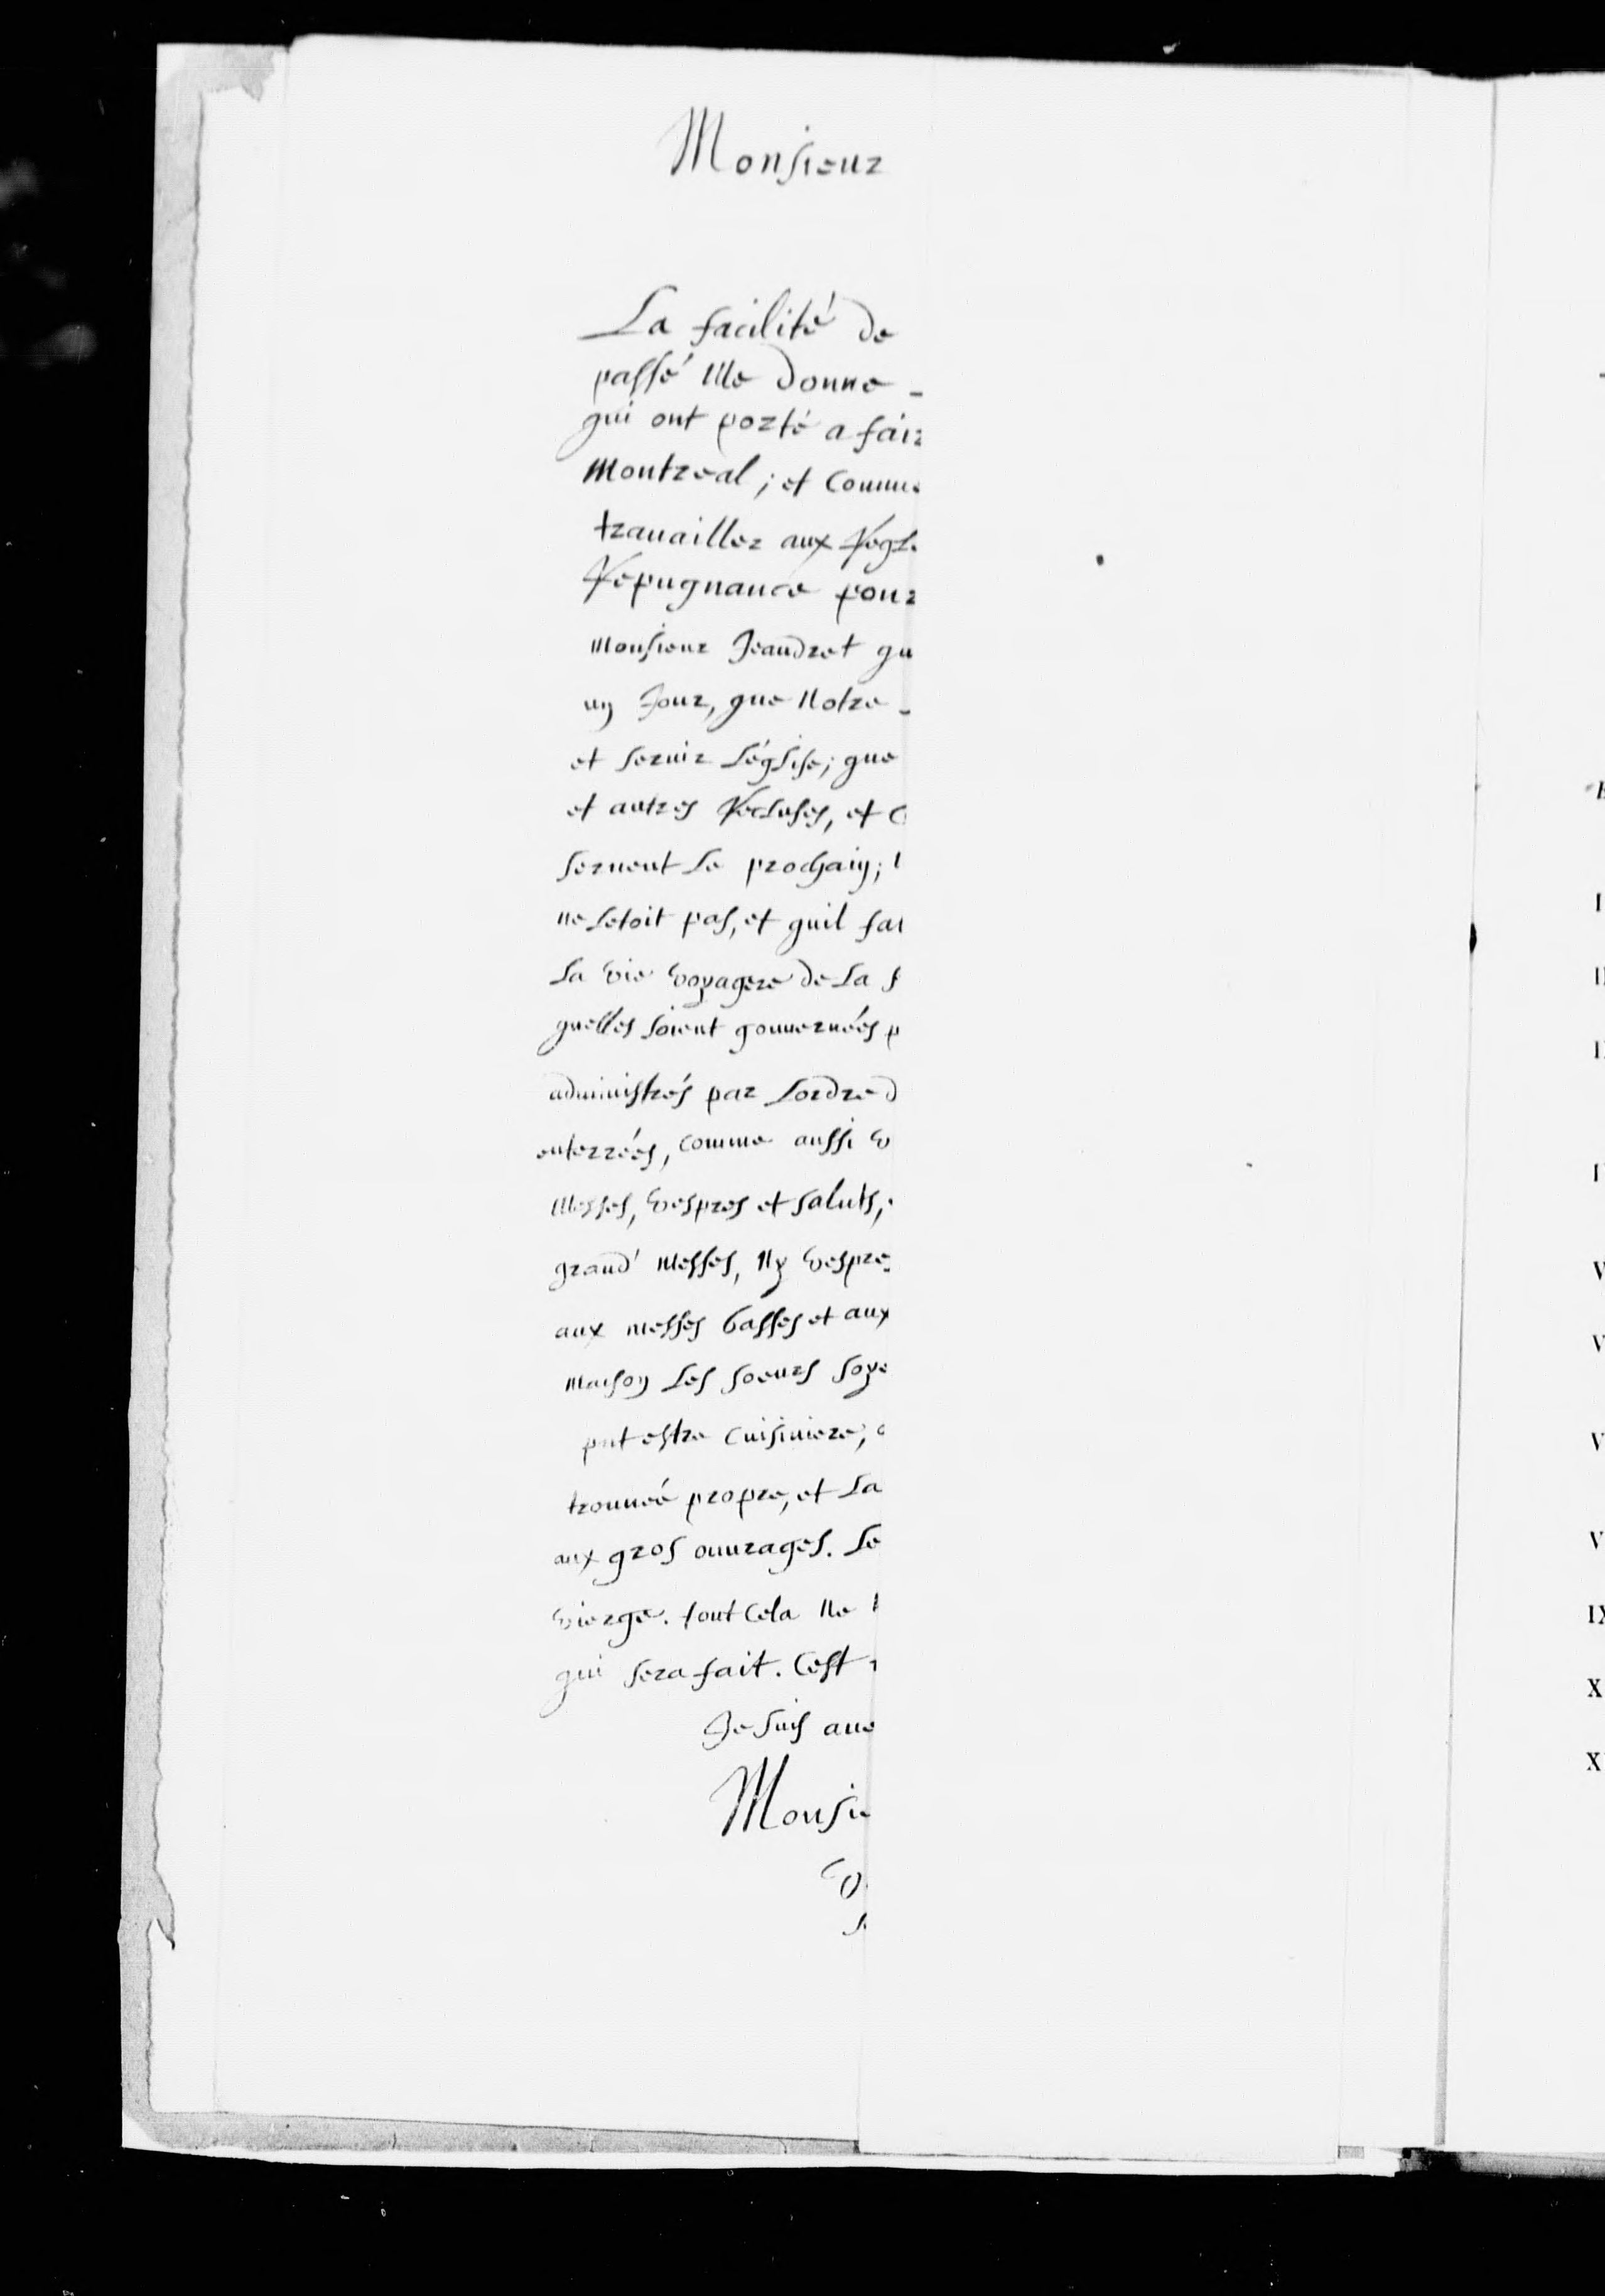 Monsieur
La facilité de
passé me donne
qui ont porté a fair
Montreal; et comme
travailler aux Regl
Repugnance pour
Monsieur Jeandret qu
un Jour, que Notre
et servir L'église; que
et autres Recluses, et
servent Le prochain;
ne Letoit pas, et quil fa
La vie voyagere de La
quelles soient gouvernées p
administrés par Lordre d
enterrées, comme aussi v
Messes, vespres et saluts,
grand' messes, Ny vespre
aux messes basses et aux
maison Les soeurs soye
put estre cuisiniere;
trouvée propre, et La
aux gros ouvrages. Le
vierge. tout cela ne
qui sera fait. Cest
Je suis ave
Monsie
I
V
V
V
V
IX
X
X